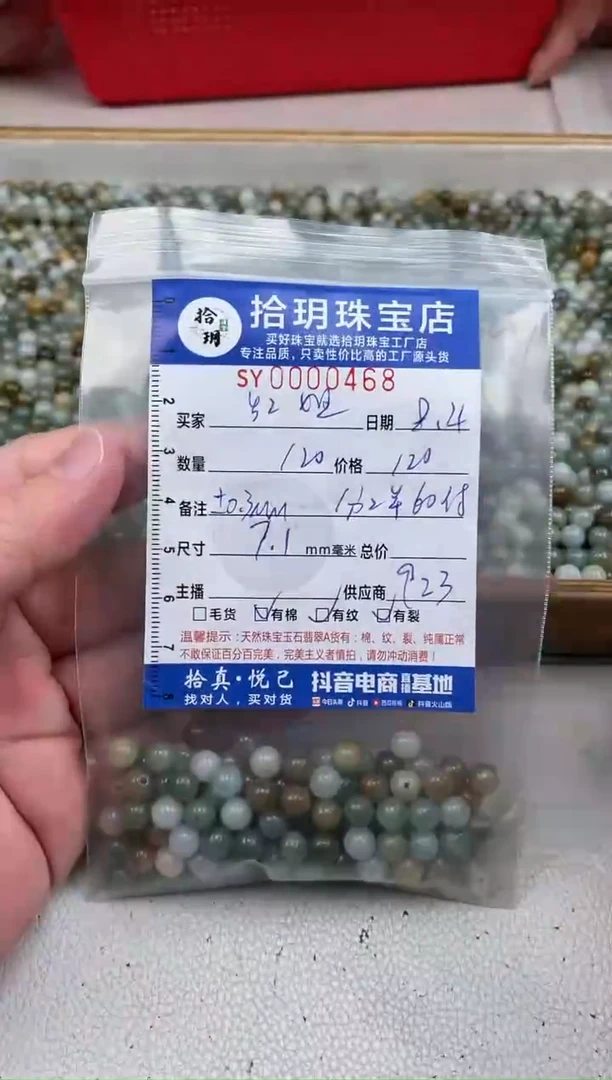 拾玥
拾玥珠宝店
买好珠宝就选拾玥珠宝工厂店
专注品质,只卖性价比高的工厂源头货
SY0000468
买家 日期 8.4
数量 120 价格 120
备注 ±0.3mm 60付
尺寸 7.1 mm毫米 总价
主播 供应商 923
毛货 有棉 有纹 有裂
温馨提示:天然珠宝玉石翡翠A货有:棉、纹、裂、纯属正常
不敢保证百分百完美,完美主义者慎拍,请勿冲动消费!
拾真·悦己 抖音电商直播基地
找对人,买对货 今日头条 抖音 西瓜视频 抖音火山版
0
1
2
3
4
5
6
7
8